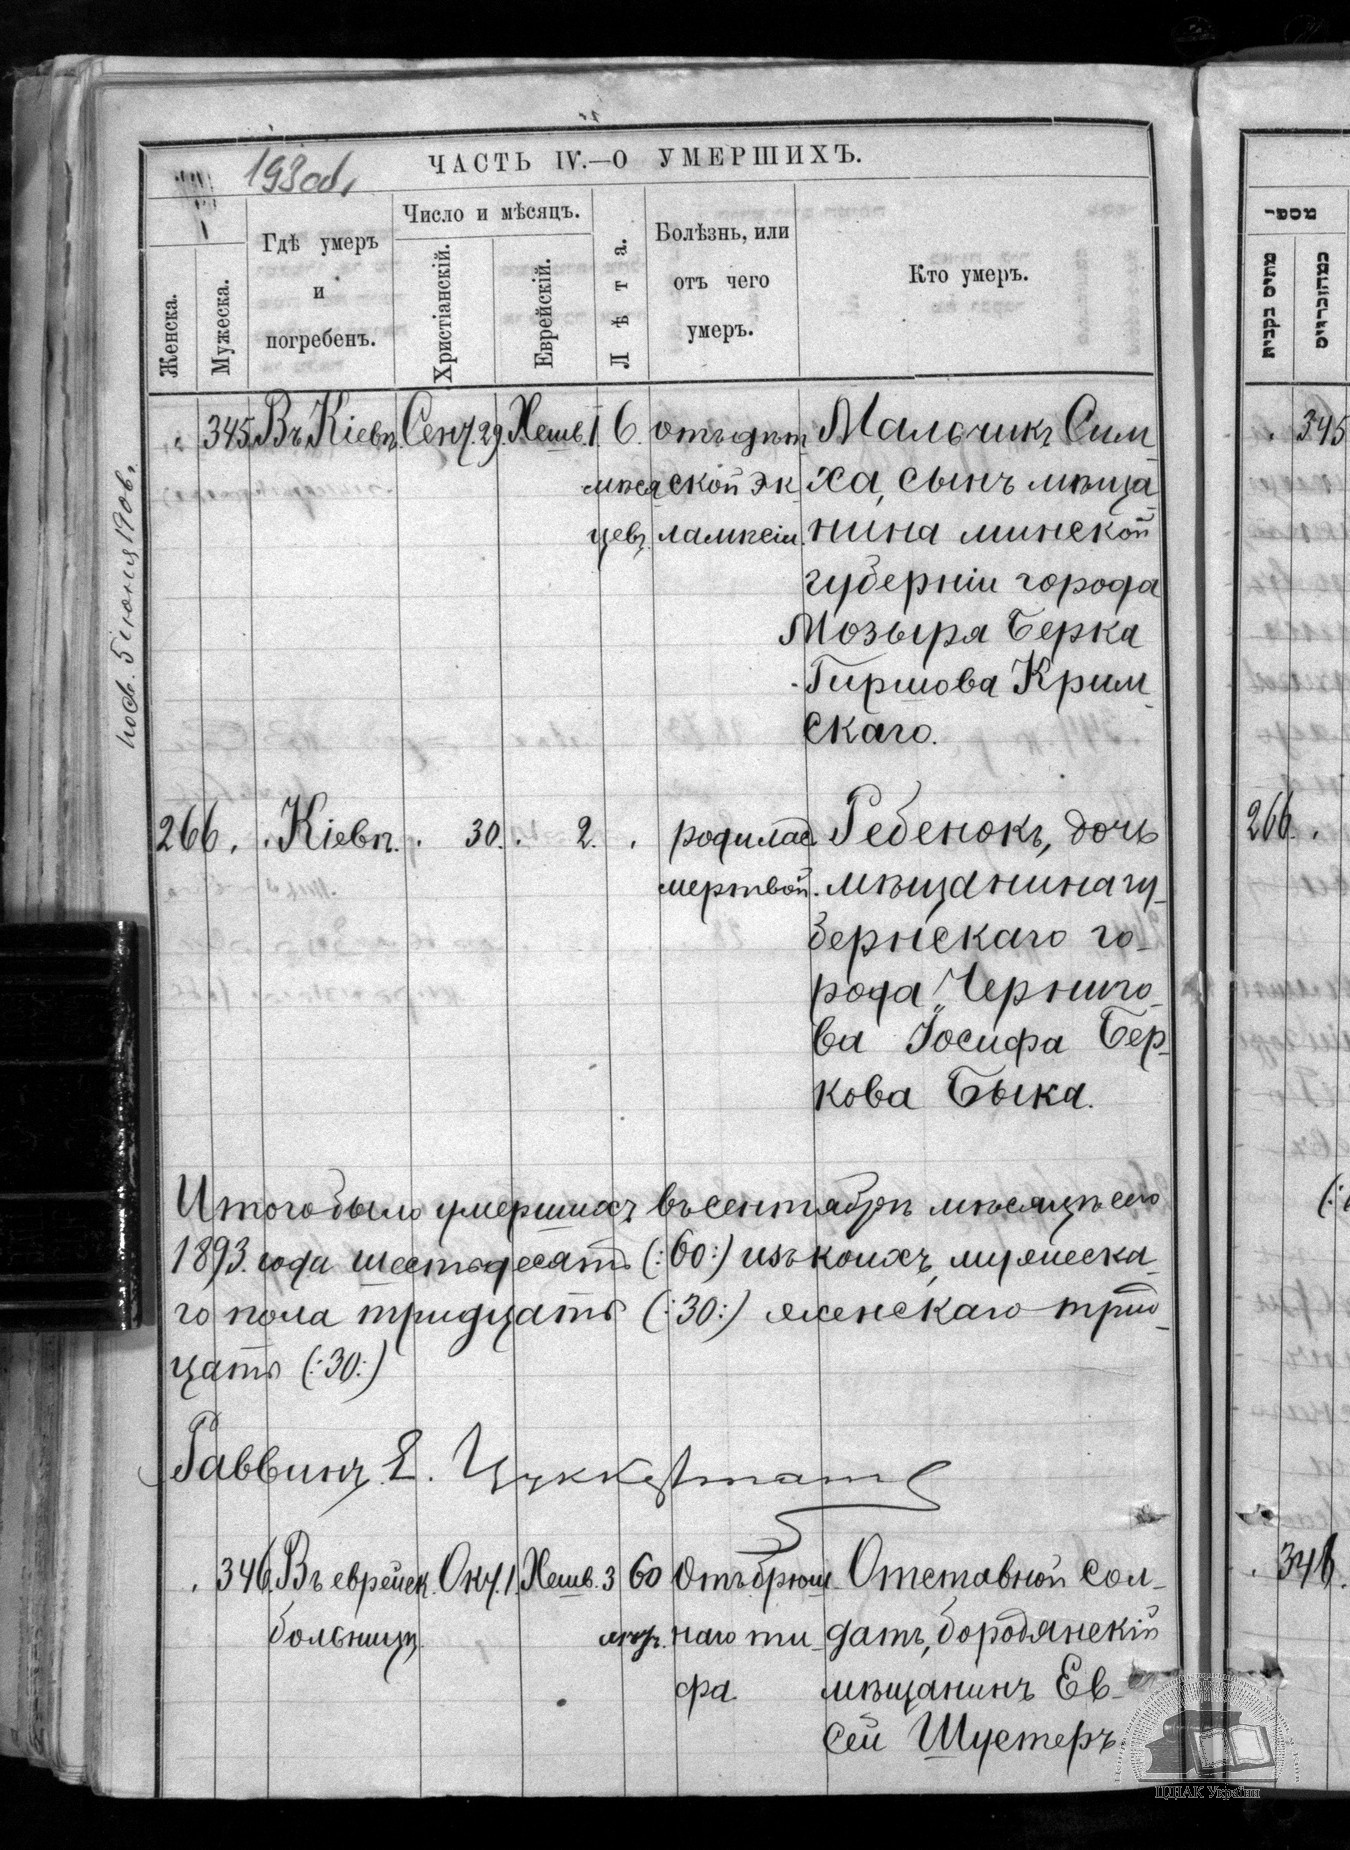 193 об.
ЧАСТЬ IV.—О УМЕРШИХЪ.
Женска.
Мужеска.
Гдѣ умеръ
и
погребенъ.
Число и мѣсяцъ.
Христіанскій.
Еврейскій.
Лѣта.
Болѣзнь, или
отъ чего
умеръ.
Кто умеръ.
345. Въ Кіевѣ. Сент. 29. Хешв. 1. 6. отъ дѣт Мальчикъ Сим-
мѣся ской эк- ха, сынъ мѣща
цевъ лампсіи. нина минской
губерніи города
Мозыря Берка
Гиршова Крим-
скаго.
266. Кіевѣ. 30. 2. родилас Ребенокъ, дочь
мертвой. мѣщанина гу-
бернскаго го-
рода Черниго-
ва Іосифа Бер-
кова Быка.
Итого было умершихъ въ сентябрѣ мѣсяцѣ сего
1893 года шестьдесятъ (:60:) изъ коихъ мужеска-
го пола тридцать (:30:) женскаго трид-
цать (:30:)
Раввинъ Е. Цуккерманъ
346. Въ еврейск. Окт. 1. Хешв. 3 60 Отъ брюш Отставной сол-
больницѣ наго ти- датъ, бородянскій
фа мѣщанинъ Ев-
сей Шустеръ.
מספר
345
266.
346.
ЦДІАК України